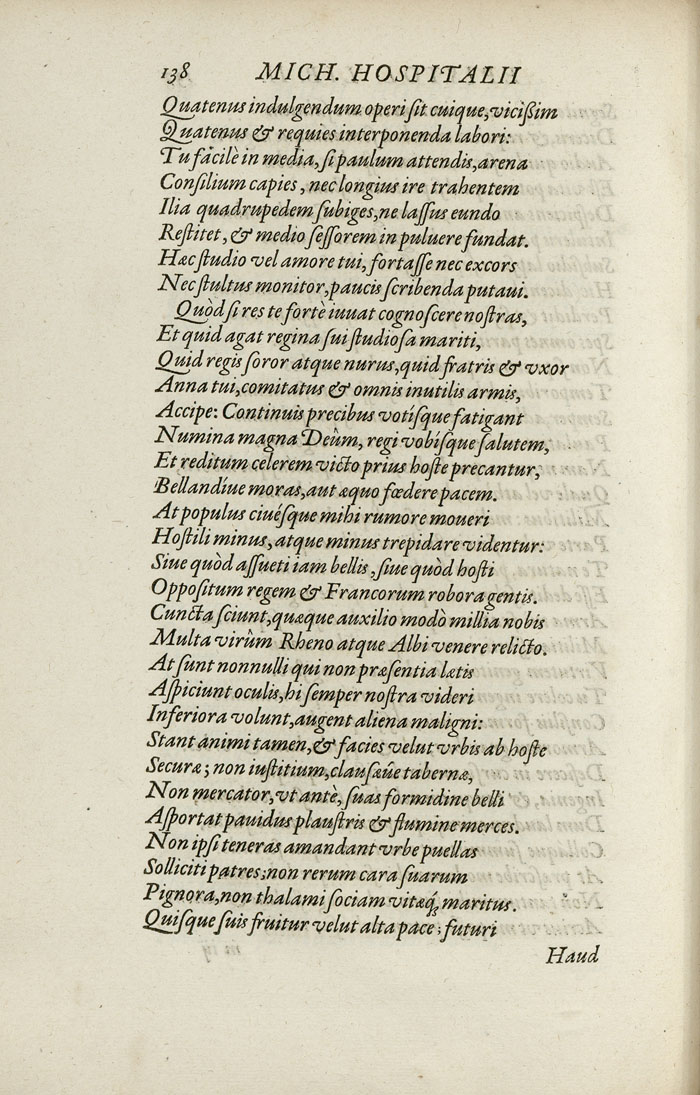 138 MICH. HOSPITALII
Quatenus indulgendum operi ſit cuique, vicißim
Quatenus & requies interponenda labori:
Tu facilè in media, ſi paulum attendis, arena
Conſilium capies, nec longius ire trahentem
Ilia quadrupedem ſubiges, ne laſſus eundo
Reſtitet, & medio ſeſſorem in puluere fundat.
Hæc ſtudio vel amore tui, fortaſſe nec excors
Nec ſtultus monitor, paucis ſcribenda putaui.
Quòd ſi res te fortè iuuat cognoſcere noſtras,
Et quid agat regina ſui ſtudioſa mariti,
Quid regis ſoror atque nurus, quid fratris & vxor
Anna tui, comitatus & omnis inutilis armis,
Accipe: Continuis precibus votíſque fatigant
Numina magna Deûm, regi vobíſque ſalutem,
Et reditum celerem victo prius hoſte precantur,
Bellandíue moras, aut æquo fœdere pacem.
At populus ciuéſque mihi rumore moueri
Hoſtili minus, atque minus trepidare videntur:
Siue quòd aſſueti iam bellis, ſiue quòd hoſti
Oppoſitum regem & Francorum robora gentis.
Cuncta ſciunt, quæque auxilio modò millia nobis
Multa virûm Rheno atque Albi venere relicto.
At ſunt nonnulli qui non præſentia lætis
Aſpiciunt oculis, hi ſemper noſtra videri
Inferiora volunt, augent aliena maligni:
Stant animi tamen, & facies velut vrbis ab hoſte
Securæ; non iuſtitium, clauſæûe tabernæ,
Non mercator, vt antè, ſuas formidine belli
Aſportat pauidus plauſtris & flumine merces.
Non ipſi teneras amandant vrbe puellas
Solliciti patres; non rerum cara ſuarum
Pignora, non thalami ſociam vitæq́; maritus.
Quiſque ſuis fruitur velut alta pace; futuri
Haud